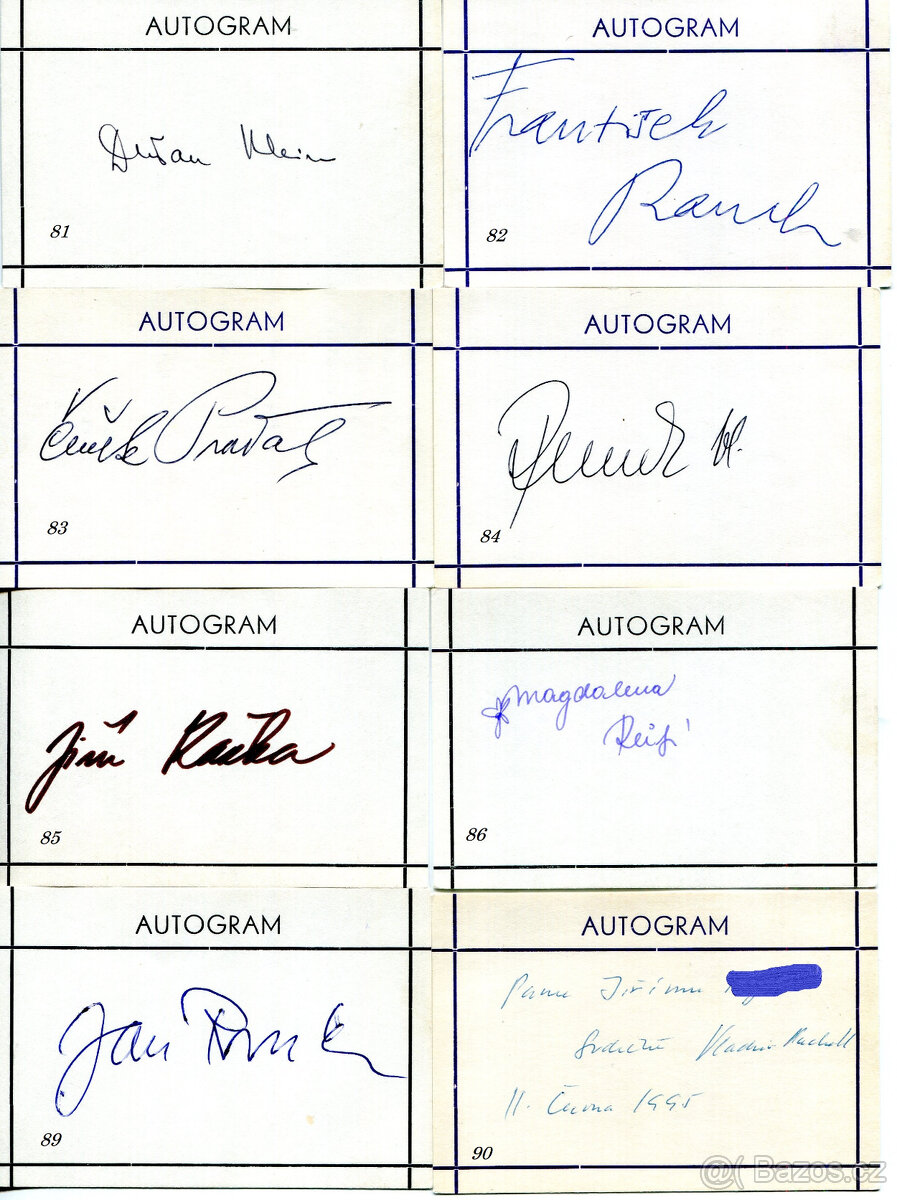 AUTOGRAM
Dušan Klein
81
AUTOGRAM
František
Rauch
82
AUTOGRAM
Čeněk Pražák
83
AUTOGRAM
84
AUTOGRAM
Jiří Raška
85
AUTOGRAM
Magdalena
86
AUTOGRAM
Jan
89
AUTOGRAM
Panu Jiřímu
Srdečně
11. června 1995
90
@( Bazos.cz